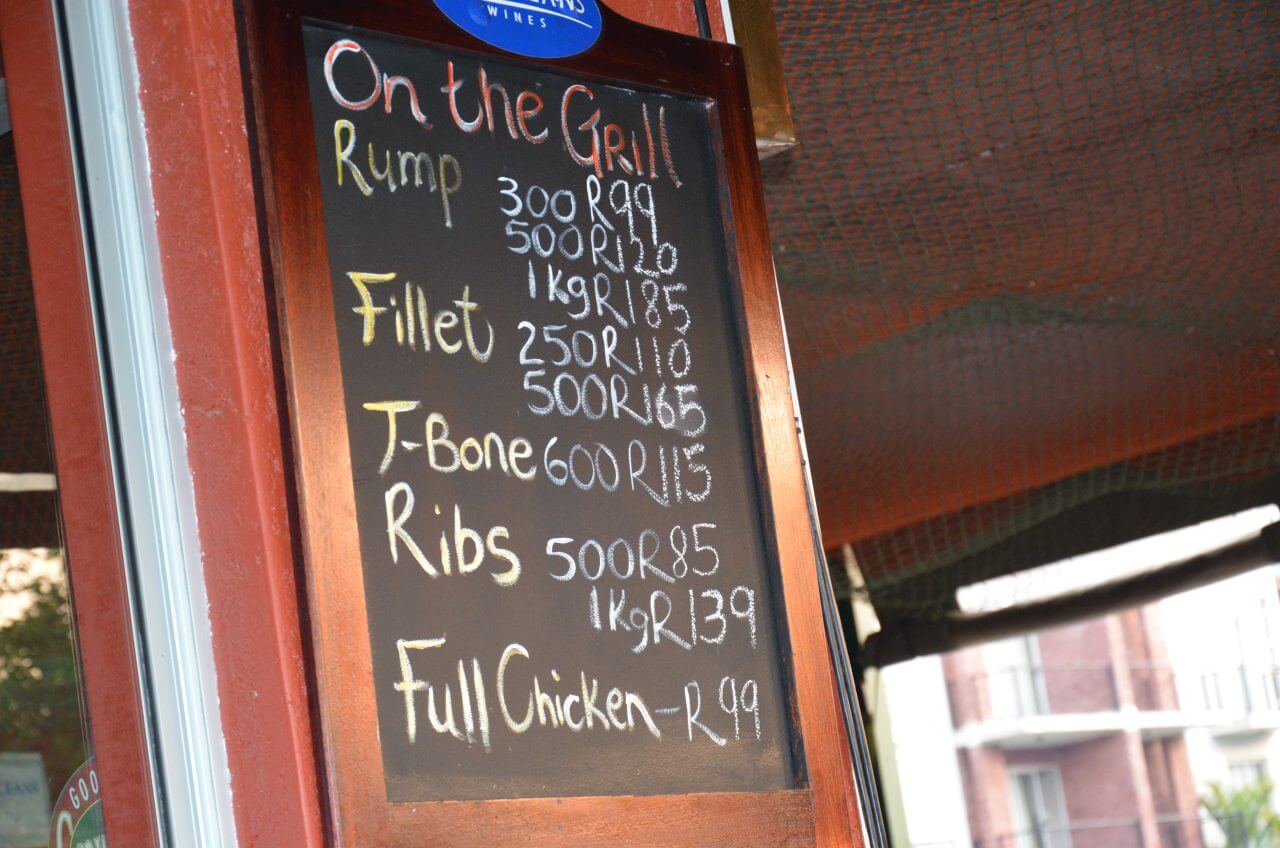 WINES
On the Grill
Rump
300 R99
500 R120
1kg R185
Fillet
250 R110
500 R165
T-Bone 600 R115
Ribs 500 R85
1kg R139
Full Chicken - R99
GOO